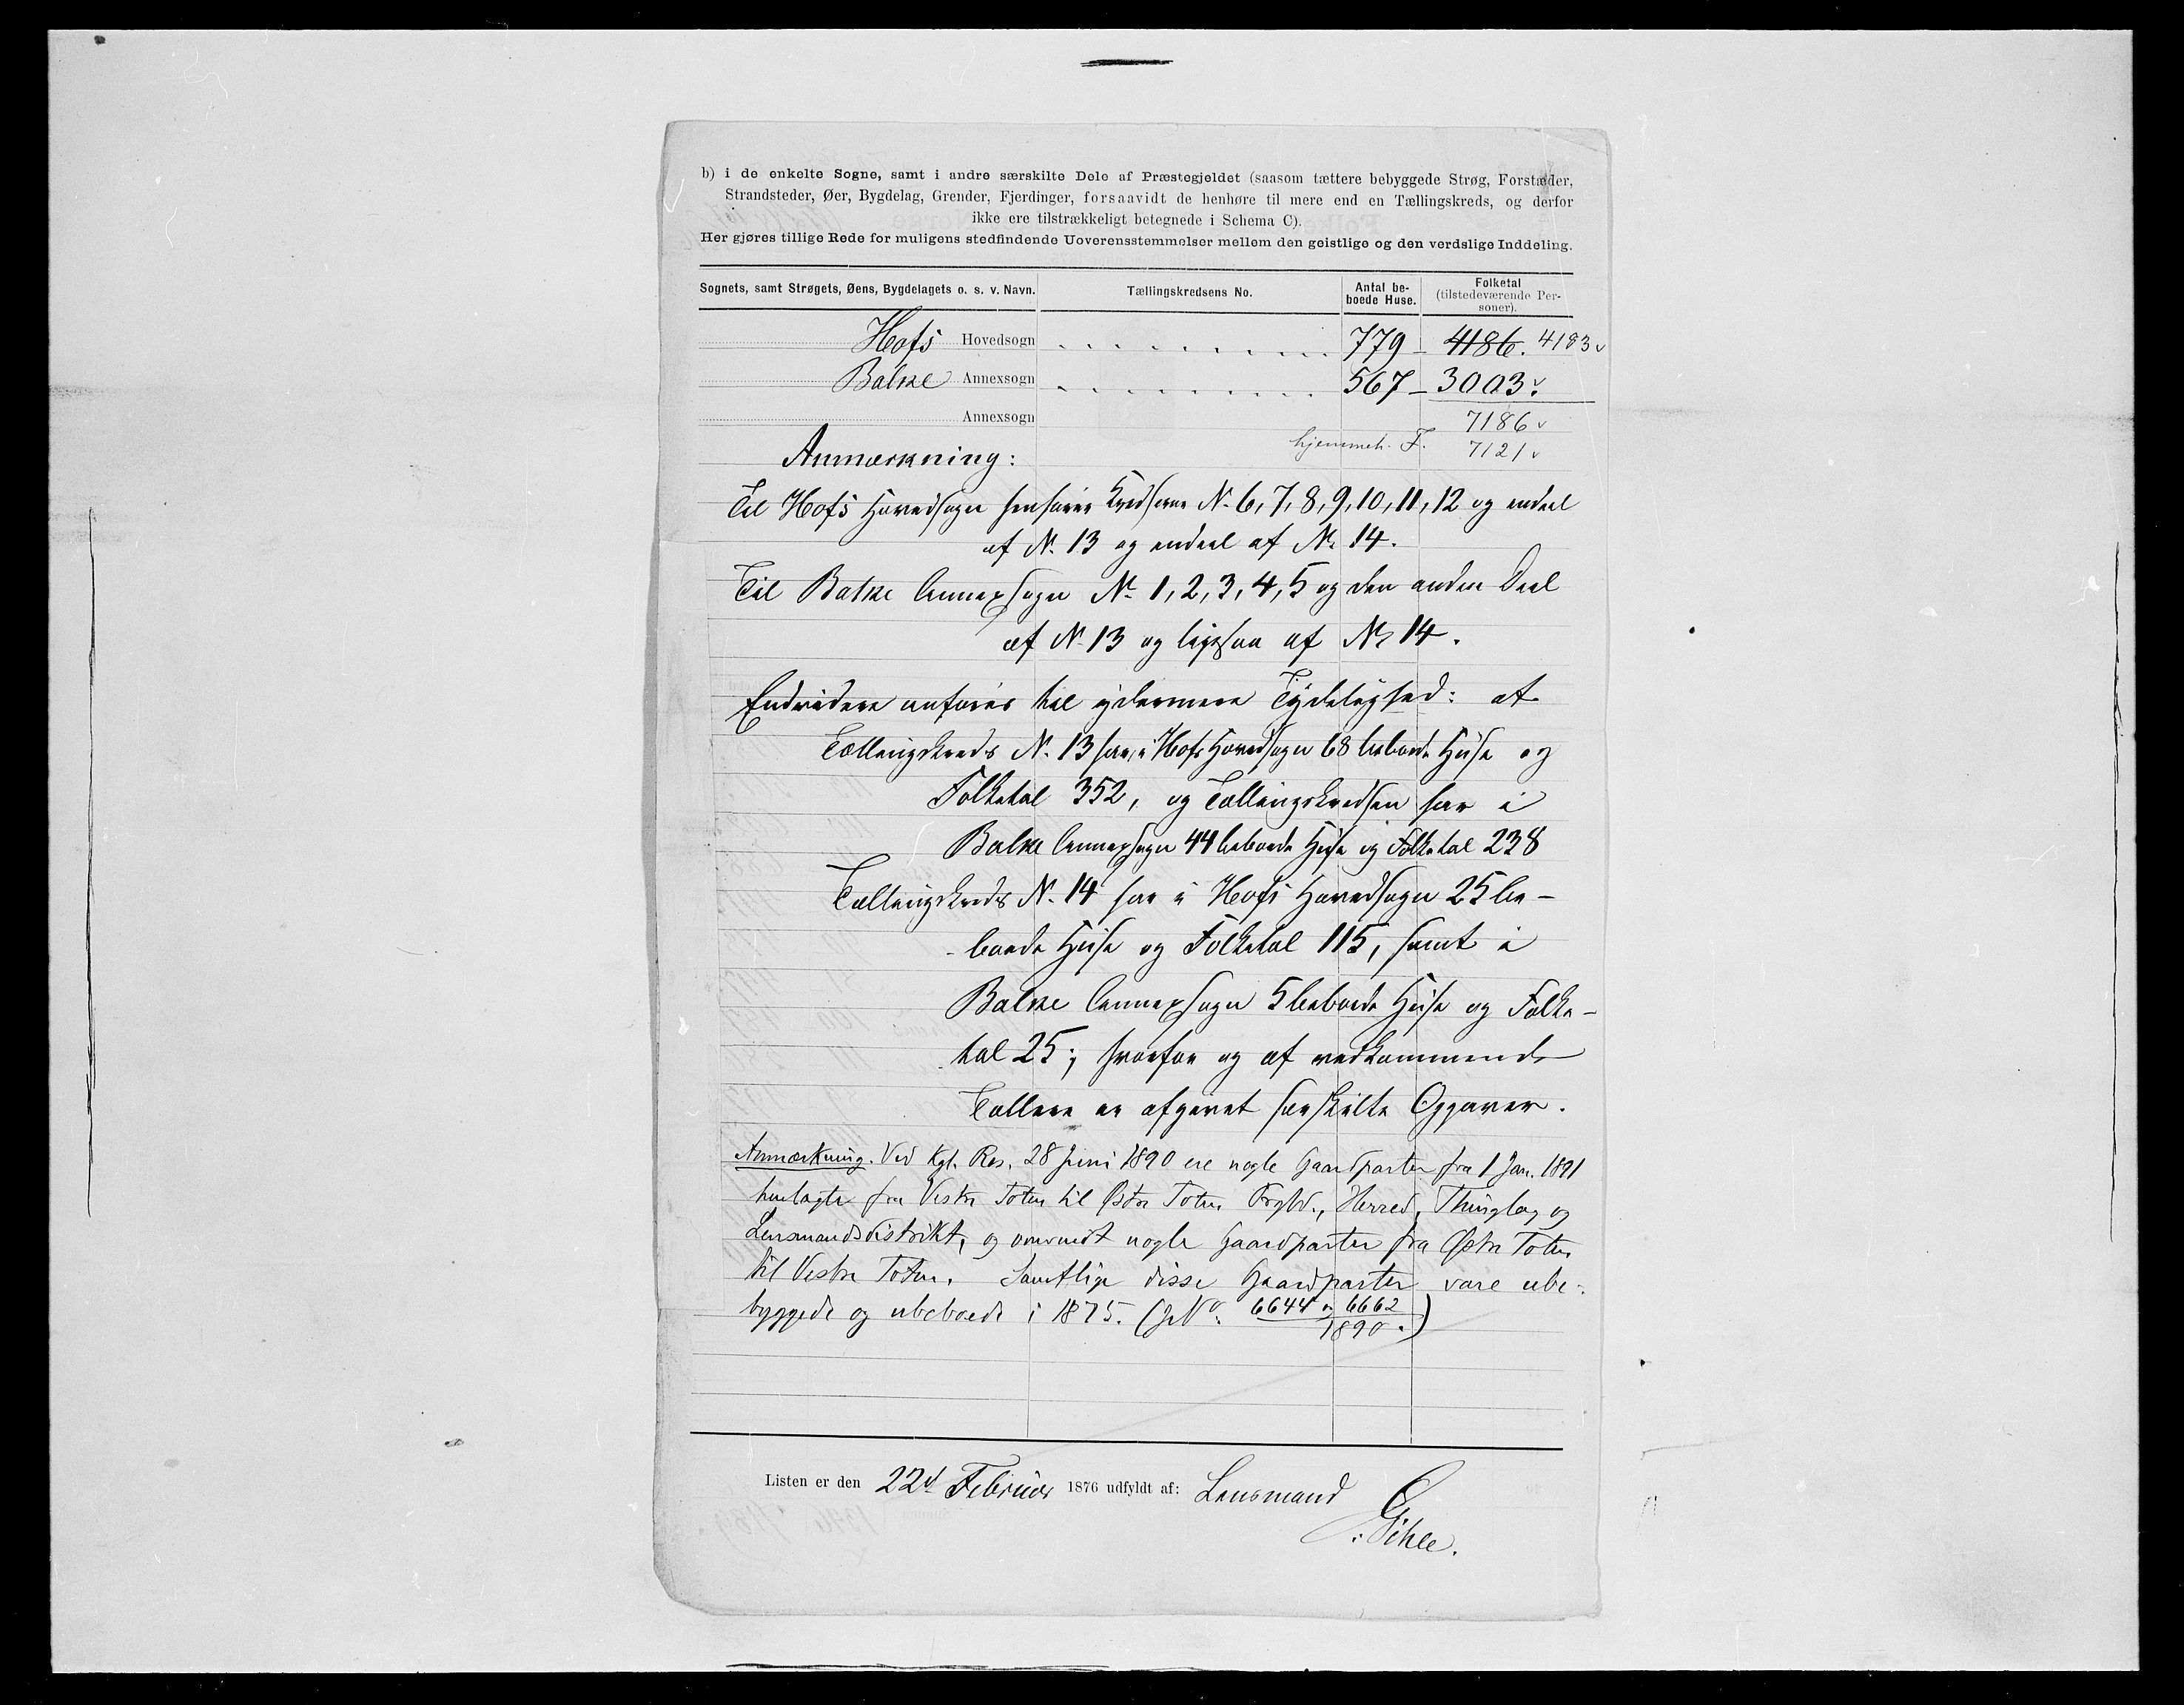 b) i de enkelte Sogne, samt i andre særskilte Dele af Præstegjeldet (saasom tættere bebyggede Strøg, Forstæder,
Strandsteder, Øer, Bygdelag, Grender, Fjerdinger, forsaavidt de henhøre til mere end en Tællingskreds, og derfor
ikke ere tilstrækkeligt betegnede i Schema C).
Her gjøres tillige Rede for muligens stedfindende Uoverensstemmelser mellem den geistlige og den verdslige Inddeling.
Sognets, samt Strøgets, Øens, Bygdelagets o. s. v. Navn. Tællingskredsens No. Antal beboede Huse. Folketal (tilstedeværende Personer).
Hofs Hovedsogn 779 - 4186. 4183 v
Balke Annexsogn 567 - 3003 v
Annexsogn 7186 v
hjemmeh. F. 7121 v
Anmærkning:
Til Hofs Hovedsogn henhører Kredserne N. 6, 7, 8, 9, 10, 11, 12 og endeel
af N. 13 og endeel af N. 14.
Til Balke Annexsogn N. 1, 2, 3, 4, 5 og den anden Deel
af N. 13 og ligesaa af N. 14.
Endvidere anføres til ydermere Tydelighed: at
Tællingskreds N. 13 har i Hofs Hovedsogn 68 beboede Huse og
Folketal 352, og Tællingskredsen har i
Balke Annexsogn 44 beboede Huse og Folketal 238
Tællingskreds N. 14 har i Hofs Hovedsogn 25 be-
boede Huse og Folketal 115, samt i
Balke Annexsogn 5 beboede Huse og Folke-
tal 25; hvorfor og af vedkommende
Tællere er afgivet særskilte Opgaver.
Anmærkning. Ved Kgl. Res. 28 Juni 1890 ere nogle Gaardparter fra 1 Jan. 1891
henlagte fra Vestre Toten til Østre Toten Prgld., Herred, Thinglag og
Lensmandsdistrikt, og omvendt nogle Gaardparter fra Østre Toten
til Vestre Toten. Samtlige disse Gaardparter vare ube-
byggede og ubeboede i 1875. (J.No. 6644 og 6662
1890.)
Listen er den 22d Februar 1876 udfyldt af: Lensmand
Gihle.